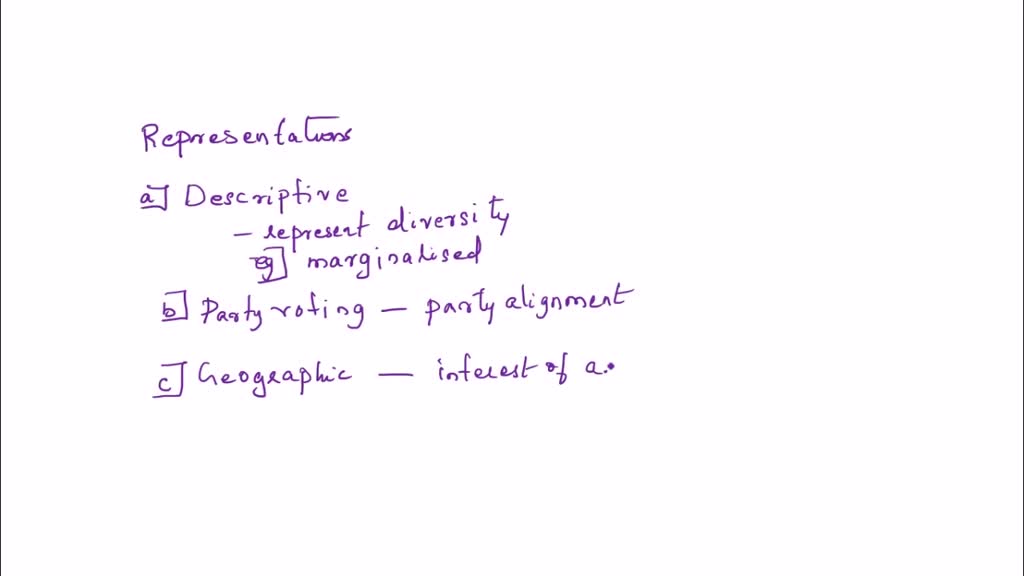 Representations
a] Descriptive
- represent diversity
eg] marginalised
b] Party voting - party alignment
c] Geographic - interest of a